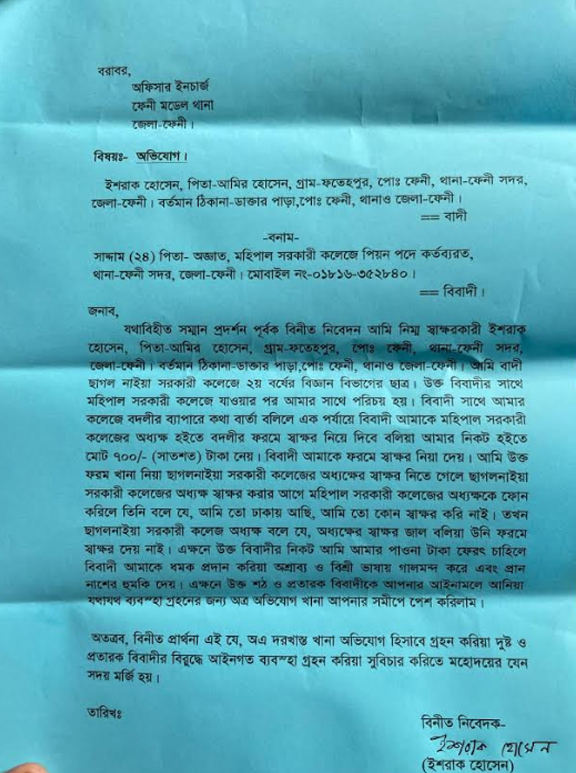 বরাবর,
অফিসার ইনচার্জ
ফেনী মডেল থানা
জেলা-ফেনী।
বিষয়ঃ- অভিযোগ।
ইশরাক হোসেন, পিতা-আমির হোসেন, গ্রাম-ফতেহপুর, পোঃ ফেনী, থানা-ফেনী সদর,
জেলা-ফেনী। বর্তমান ঠিকানা-ডাক্তার পাড়া,পোঃ ফেনী, থানাও জেলা-ফেনী।
== বাদী
-বনাম-
সাদ্দাম (২৪) পিতা- অজ্ঞাত, মহিপাল সরকারী কলেজে পিয়ন পদে কর্তব্যরত,
থানা-ফেনী সদর, জেলা-ফেনী। মোবাইল নং-০১৮১৬-৩৫২৮৪০।
== বিবাদী।
জনাব,
যথাবিহীত সম্মান প্রদর্শন পূর্বক বিনীত নিবেদন আমি নিম্ম স্বাক্ষরকারী ইশরাক
হোসেন, পিতা-আমির হোসেন, গ্রাম-ফতেহপুর, পোঃ ফেনী, থানা-ফেনী সদর,
জেলা-ফেনী। বর্তমান ঠিকানা-ডাক্তার পাড়া,পোঃ ফেনী, থানাও জেলা-ফেনী। আমি বাদী
ছাগল নাইয়া সরকারী কলেজে ২য় বর্ষের বিজ্ঞান বিভাগের ছাত্র। উক্ত বিবাদীর সাথে
মহিপাল সরকারী কলেজে যাওয়ার পর আমার সাথে পরিচয় হয়। বিবাদী সাথে আমার
কলেজে বদলীর ব্যাপারে কথা বার্তা বলিলে এক পর্যায়ে বিবাদী আমাকে মহিপাল সরকারী
কলেজের অধ্যক্ষ হইতে বদলীর ফরমে স্বাক্ষর নিয়ে দিবে বলিয়া আমার নিকট হইতে
মোট ৭০০/- (সাতশত) টাকা নেয়। বিবাদী আমাকে ফরমে স্বাক্ষর নিয়া দেয়। আমি উক্ত
ফরম খানা নিয়া ছাগলনাইয়া সরকারী কলেজের অধ্যক্ষের স্বাক্ষর নিতে গেলে ছাগলনাইয়া
সরকারী কলেজের অধ্যক্ষ স্বাক্ষর করার আগে মহিপাল সরকারী কলেজের অধ্যক্ষকে ফোন
করিলে তিনি বলে যে, আমি তো ঢাকায় আছি, আমি তো কোন স্বাক্ষর করি নাই। তখন
ছাগলনাইয়া সরকারী কলেজ অধ্যক্ষ বলে যে, অধ্যক্ষের স্বাক্ষর জাল বলিয়া উনি ফরমে
স্বাক্ষর দেয় নাই। এক্ষনে উক্ত বিবাদীর নিকট আমি আমার পাওনা টাকা ফেরৎ চাহিলে
বিবাদী আমাকে ধমক প্রদান করিয়া অশ্রাব্য ও বিশ্রী ভাষায় গালমন্দ করে এবং প্রান
নাশের হুমকি দেয়। এক্ষনে উক্ত শঠ ও প্রতারক বিবাদীকে আপনার আইনামলে আনিয়া
যথাযথ ব্যবস্হা গ্রহনের জন্য অত্র অভিযোগ খানা আপনার সমীপে পেশ করিলাম।
অতত্রব, বিনীত প্রার্থনা এই যে, অএ দরখাস্ত খানা অভিযোগ হিসাবে গ্রহন করিয়া দুষ্ট ও
প্রতারক বিবাদীর বিরূদ্ধে আইনগত ব্যবস্হা গ্রহন করিয়া সুবিচার করিতে মহোদয়ের যেন
সদয় মর্জি হয়।
তারিখঃ
বিনীত নিবেদক-
ইশরাক হোসেন
(ইশরাক হোসেন)